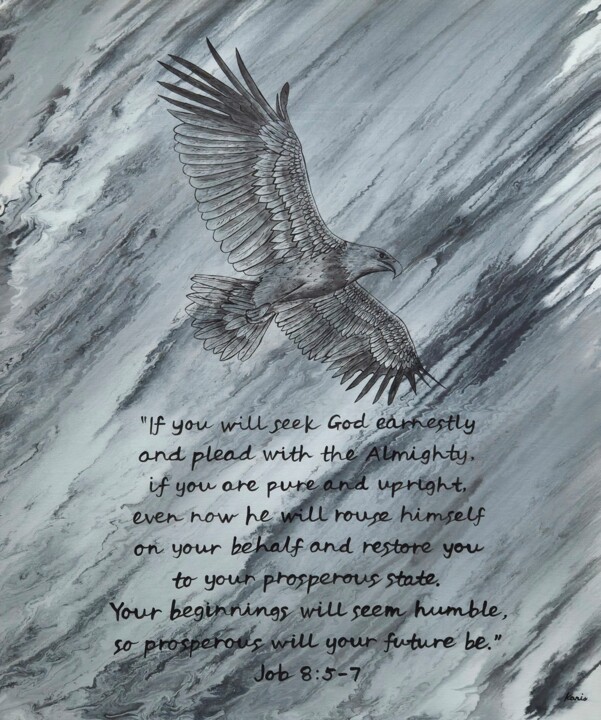 "If you will seek God earnestly
and plead with the Almighty,
if you are pure and upright,
even now he will rouse himself
on your behalf and restore you
to your prosperous state.
Your beginnings will seem humble,
so prosperous will your future be."
Job 8:5-7
Karis